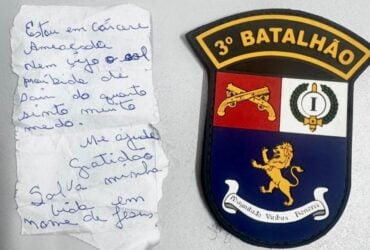 Estou em Cárcere
Ameaçada
Nem vejo o sol
proibida de
Sair do quarto
sinto muito
medo.
Me ajude
Gatidão
Salva minha
vida em
nome de Jesus
3º BATALHÃO
I